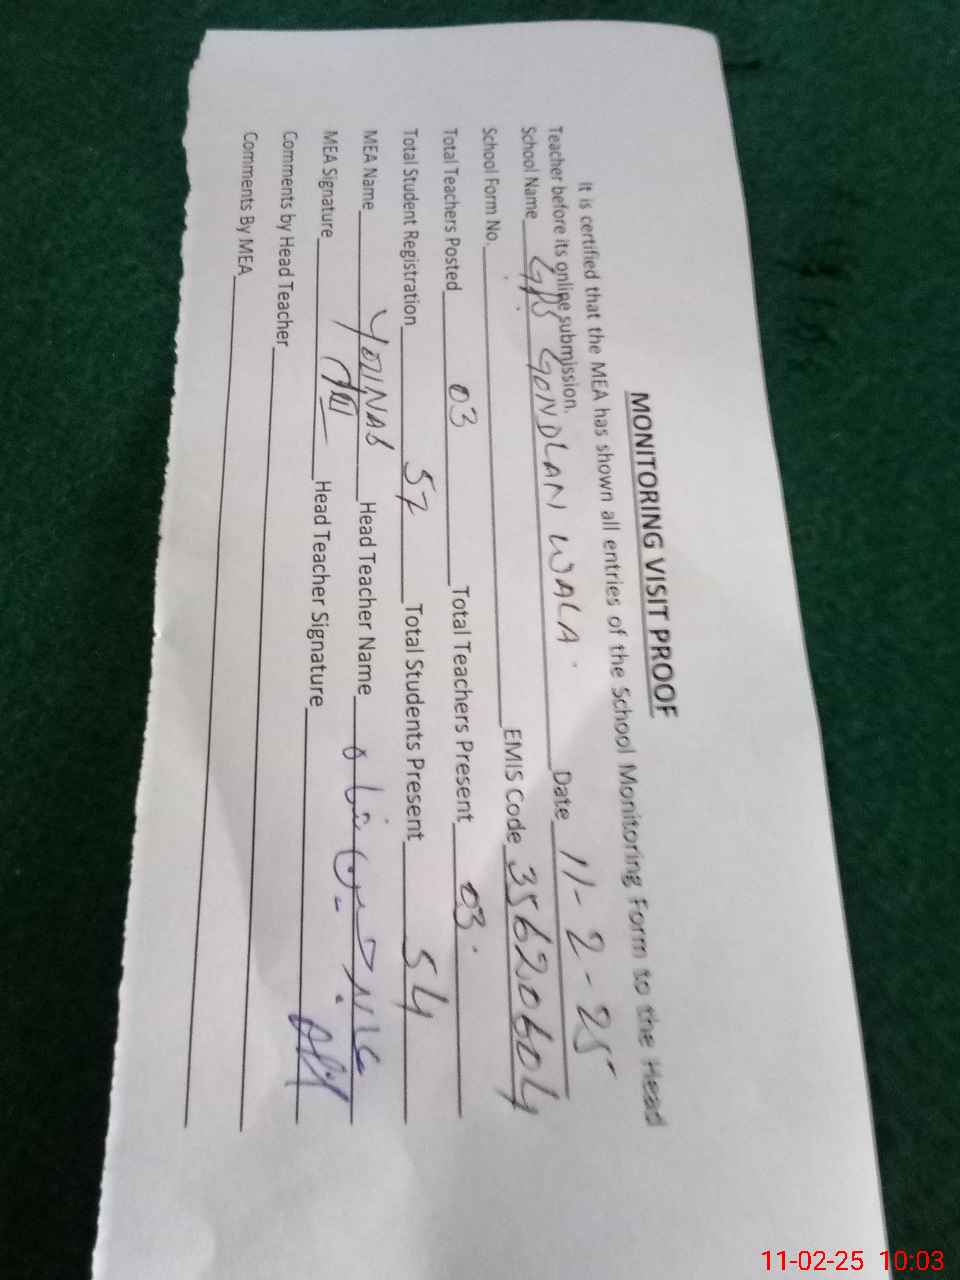 MONITORING VISIT PROOF
It is certified that the MEA has shown all entries of the School Monitoring Form to the Head
Teacher before its online submission.
School Name GPS GONDLAN WALA. Date 11-2-25
School Form No. EMIS Code 35620604
Total Teachers Posted 03 Total Teachers Present 03.
Total Student Registration 57 Total Students Present 54
MEA Name YOUNAS Head Teacher Name
MEA Signature Head Teacher Signature
Comments by Head Teacher
Comments By MEA
11-02-25 10:03